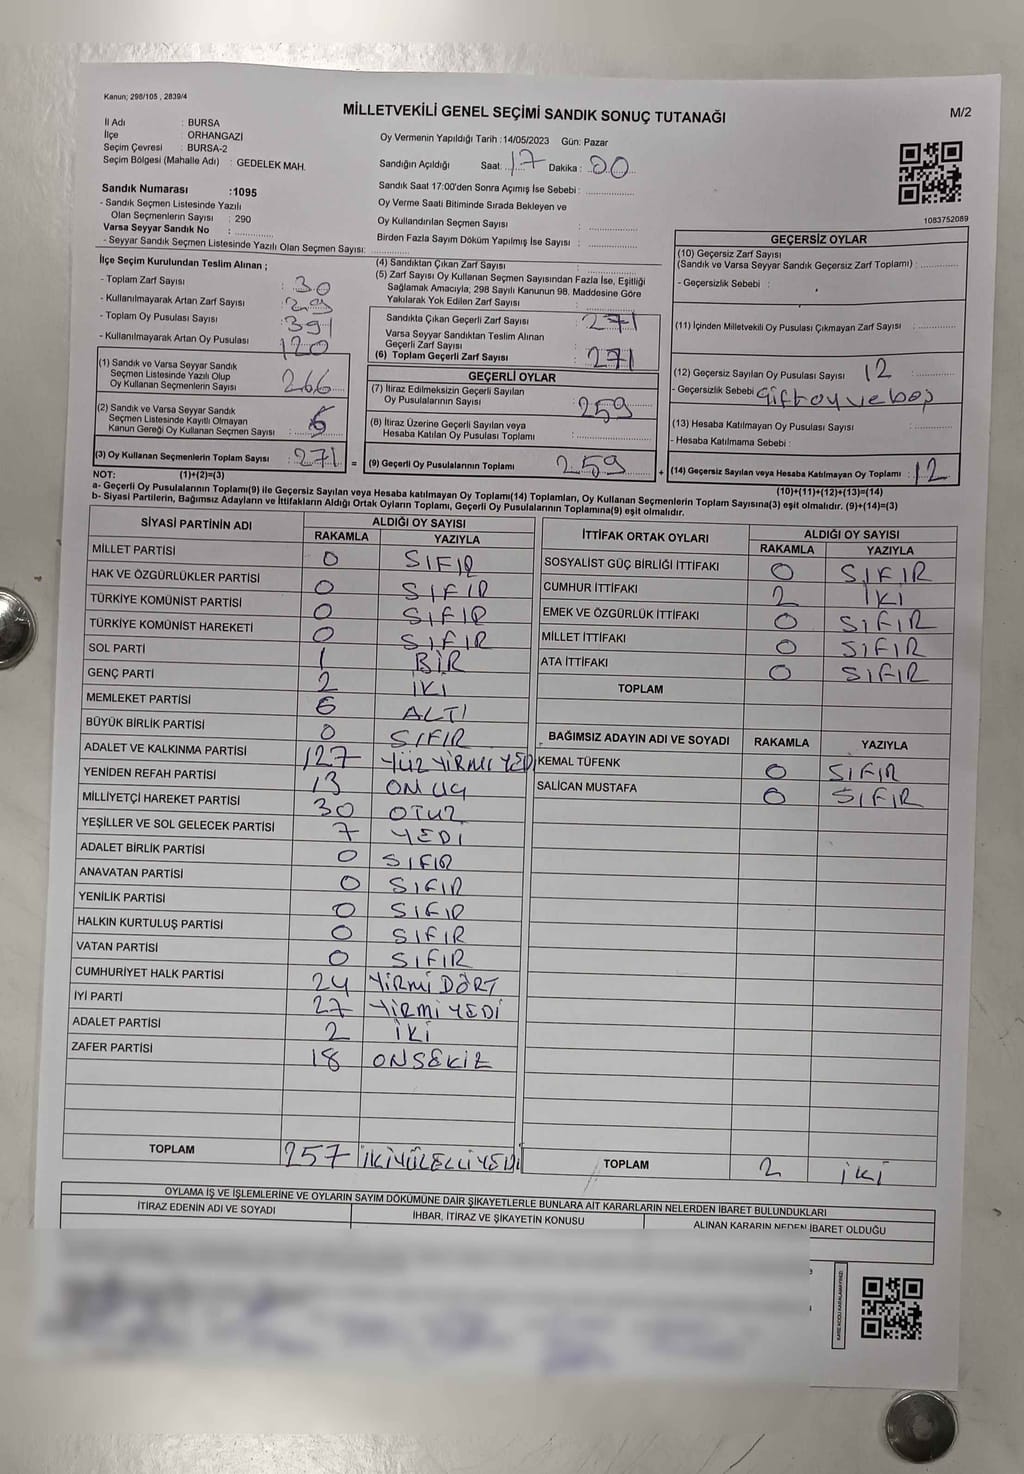 Kanun; 298/105 , 2839/4
MİLLETVEKİLİ GENEL SEÇİMİ SANDIK SONUÇ TUTANAĞI
M/2
İl Adı : BURSA
İlçe : ORHANGAZİ
Seçim Çevresi : BURSA-2
Seçim Bölgesi (Mahalle Adı) : GEDELEK MAH.
Oy Vermenin Yapıldığı Tarih :14/05/2023 Gün: Pazar
Sandığın Açıldığı Saat: 17 Dakika : 00
Sandık Saat 17:00'den Sonra Açımış İse Sebebi :
Oy Verme Saati Bitiminde Sırada Bekleyen ve
Oy Kullandırılan Seçmen Sayısı :
Birden Fazla Sayım Döküm Yapılmış İse Sayısı :
1083752089
Sandık Numarası :1095
- Sandık Seçmen Listesinde Yazılı
Olan Seçmenlerin Sayısı : 290
Varsa Seyyar Sandık No :
- Seyyar Sandık Seçmen Listesinde Yazılı Olan Seçmen Sayısı:
İlçe Seçim Kurulundan Teslim Alınan ;
- Toplam Zarf Sayısı : 30
- Kullanılmayarak Artan Zarf Sayısı : 29
- Toplam Oy Pusulası Sayısı : 391
- Kullanılmayarak Artan Oy Pusulası : 120
(1) Sandık ve Varsa Seyyar Sandık
Seçmen Listesinde Yazılı Olup
Oy Kullanan Seçmenlerin Sayısı : 266
(2) Sandık ve Varsa Seyyar Sandık
Seçmen Listesinde Kayıtlı Olmayan
Kanun Gereği Oy Kullanan Seçmen Sayısı :
(3) Oy Kullanan Seçmenlerin Toplam Sayısı : 271 =
(4) Sandıktan Çıkan Zarf Sayısı :
(5) Zarf Sayısı Oy Kullanan Seçmen Sayısından Fazla İse, Eşitliği
Sağlamak Amacıyla; 298 Sayılı Kanunun 98. Maddesine Göre
Yakılarak Yok Edilen Zarf Sayısı :
Sandıkta Çıkan Geçerli Zarf Sayısı : 271
Varsa Seyyar Sandıktan Teslim Alınan
Geçerli Zarf Sayısı :
(6) Toplam Geçerli Zarf Sayısı : 271
GEÇERLİ OYLAR
(7) İtiraz Edilmeksizin Geçerli Sayılan
Oy Pusulalarının Sayısı : 259
(8) İtiraz Üzerine Geçerli Sayılan veya
Hesaba Katılan Oy Pusulası Toplamı :
(9) Geçerli Oy Pusulalarının Toplamı 259 +
GEÇERSİZ OYLAR
(10) Geçersiz Zarf Sayısı
(Sandık ve Varsa Seyyar Sandık Geçersiz Zarf Toplamı) :
- Geçersizlik Sebebi :
(11) İçinden Milletvekili Oy Pusulası Çıkmayan Zarf Sayısı :
(12) Geçersiz Sayılan Oy Pusulası Sayısı : 12
- Geçersizlik Sebebi : Çift oy ve boş
(13) Hesaba Katılmayan Oy Pusulası Sayısı :
- Hesaba Katılmama Sebebi :
(14) Geçersiz Sayılan veya Hesaba Katılmayan Oy Toplamı : 12
NOT: (1)+(2)=(3)
(10)+(11)+(12)+(13)=(14)
a- Geçerli Oy Pusulalarının Toplamı(9) ile Geçersiz Sayılan veya Hesaba katılmayan Oy Toplamı(14) Toplamları, Oy Kullanan Seçmenlerin Toplam Sayısına(3) eşit olmalıdır. (9)+(14)=(3)
b- Siyasi Partilerin, Bağımsız Adayların ve İttifakların Aldığı Ortak Oyların Toplamı, Geçerli Oy Pusulalarının Toplamına(9) eşit olmalıdır.
SİYASİ PARTİNİN ADI ALDIĞI OY SAYISI
RAKAMLA YAZIYLA
MİLLET PARTİSİ 0 SIFIR
HAK VE ÖZGÜRLÜKLER PARTİSİ 0 SIFIR
TÜRKİYE KOMÜNİST PARTİSİ 0 SIFIR
TÜRKİYE KOMÜNİST HAREKETİ 0 SIFIR
SOL PARTİ 1 BİR
GENÇ PARTİ 2 İKİ
MEMLEKET PARTİSİ 6 ALTI
BÜYÜK BİRLİK PARTİSİ 0 SIFIR
ADALET VE KALKINMA PARTİSİ 127 YÜZ YİRMİ YEDİ
YENİDEN REFAH PARTİSİ 13 ON UÇ
MİLLİYETÇİ HAREKET PARTİSİ 30 OTUZ
YEŞİLLER VE SOL GELECEK PARTİSİ 7 YEDİ
ADALET BİRLİK PARTİSİ 0 SIFIR
ANAVATAN PARTİSİ 0 SIFIR
YENİLİK PARTİSİ 0 SIFIR
HALKIN KURTULUŞ PARTİSİ 0 SIFIR
VATAN PARTİSİ 0 SIFIR
CUMHURİYET HALK PARTİSİ 24 YİRMİ DÖRT
İYİ PARTİ 27 YİRMİ YEDİ
ADALET PARTİSİ 2 İKİ
ZAFER PARTİSİ 18 ONSEKİZ
TOPLAM 257 İKİYÜZELLİYEDİ
İTTİFAK ORTAK OYLARI ALDIĞI OY SAYISI
RAKAMLA YAZIYLA
SOSYALİST GÜÇ BİRLİĞİ İTTİFAKI 0 SIFIR
CUMHUR İTTİFAKI 2 İKİ
EMEK VE ÖZGÜRLÜK İTTİFAKI 0 SIFIR
MİLLET İTTİFAKI 0 SIFIR
ATA İTTİFAKI 0 SIFIR
TOPLAM
BAĞIMSIZ ADAYIN ADI VE SOYADI RAKAMLA YAZIYLA
KEMAL TÜFENK 0 SIFIR
SALİCAN MUSTAFA 0 SIFIR
TOPLAM 2 İKİ
OYLAMA İŞ VE İŞLEMLERİNE VE OYLARIN SAYIM DÖKÜMÜNE DAİR ŞİKAYETLERLE BUNLARA AİT KARARLARIN NELERDEN İBARET BULUNDUKLARI
İTİRAZ EDENİN ADI VE SOYADI İHBAR, İTİRAZ VE ŞİKAYETİN KONUSU ALINAN KARARIN NEDEN İBARET OLDUĞU
KARE KODU KARALAMAYINIZ!